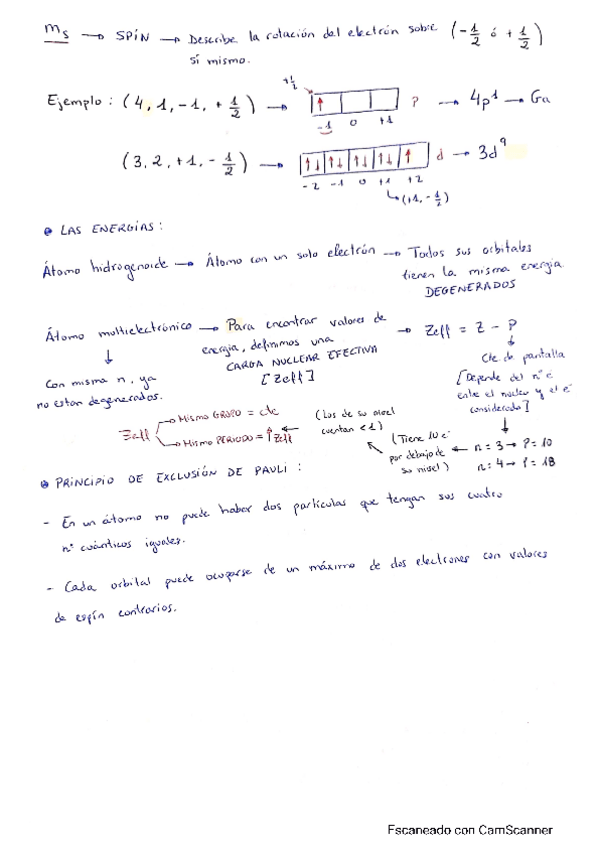 ms → SPÍN → Describe la rotación del electrón sobre (-1/2 ó +1/2)
sí mismo.
+1/2
Ejemplo : (4, 1, -1, +1/2) → ↑ p → 4p¹ → Ga
-1 0 +1
(3, 2, +1, -1/2) → ↑↓ ↑↓ ↑↓ ↑↓ ↑ d → 3d⁹
-2 -1 0 +1 +2
↳(+1, -1/2)
LAS ENERGÍAS :
Átomo hidrogenoide → Átomo con un solo electrón → Todos sus orbitales
tienen la misma energía.
DEGENERADOS
Átomo multielectrónico → Para encontrar valores de
energía, definimos una
CARGA NUCLEAR EFECTIVA
[Zeff]
→ Zeff = Z - P
Cte de pantalla
[Depende del nº e⁻
entre el núcleo y el e⁻
considerado]
Con misma n, ya
no estan degenerados.
Zeff
Mismo GRUPO = cte
Mismo PERIODO = ↑Zeff
(Los de su nivel
cuentan < 1)
(Tiene 10 e⁻
por debajo de
su nivel)
← n = 3 → P = 10
n = 4 → P = 18
PRINCIPIO DE EXCLUSIÓN DE PAULI :
- En un átomo no puede haber dos partículas que tengan sus cuatro
nº cuánticos iguales.
- Cada orbital puede ocuparse de un máximo de dos electrones con valores
de espín contrarios.
Escaneado con CamScanner